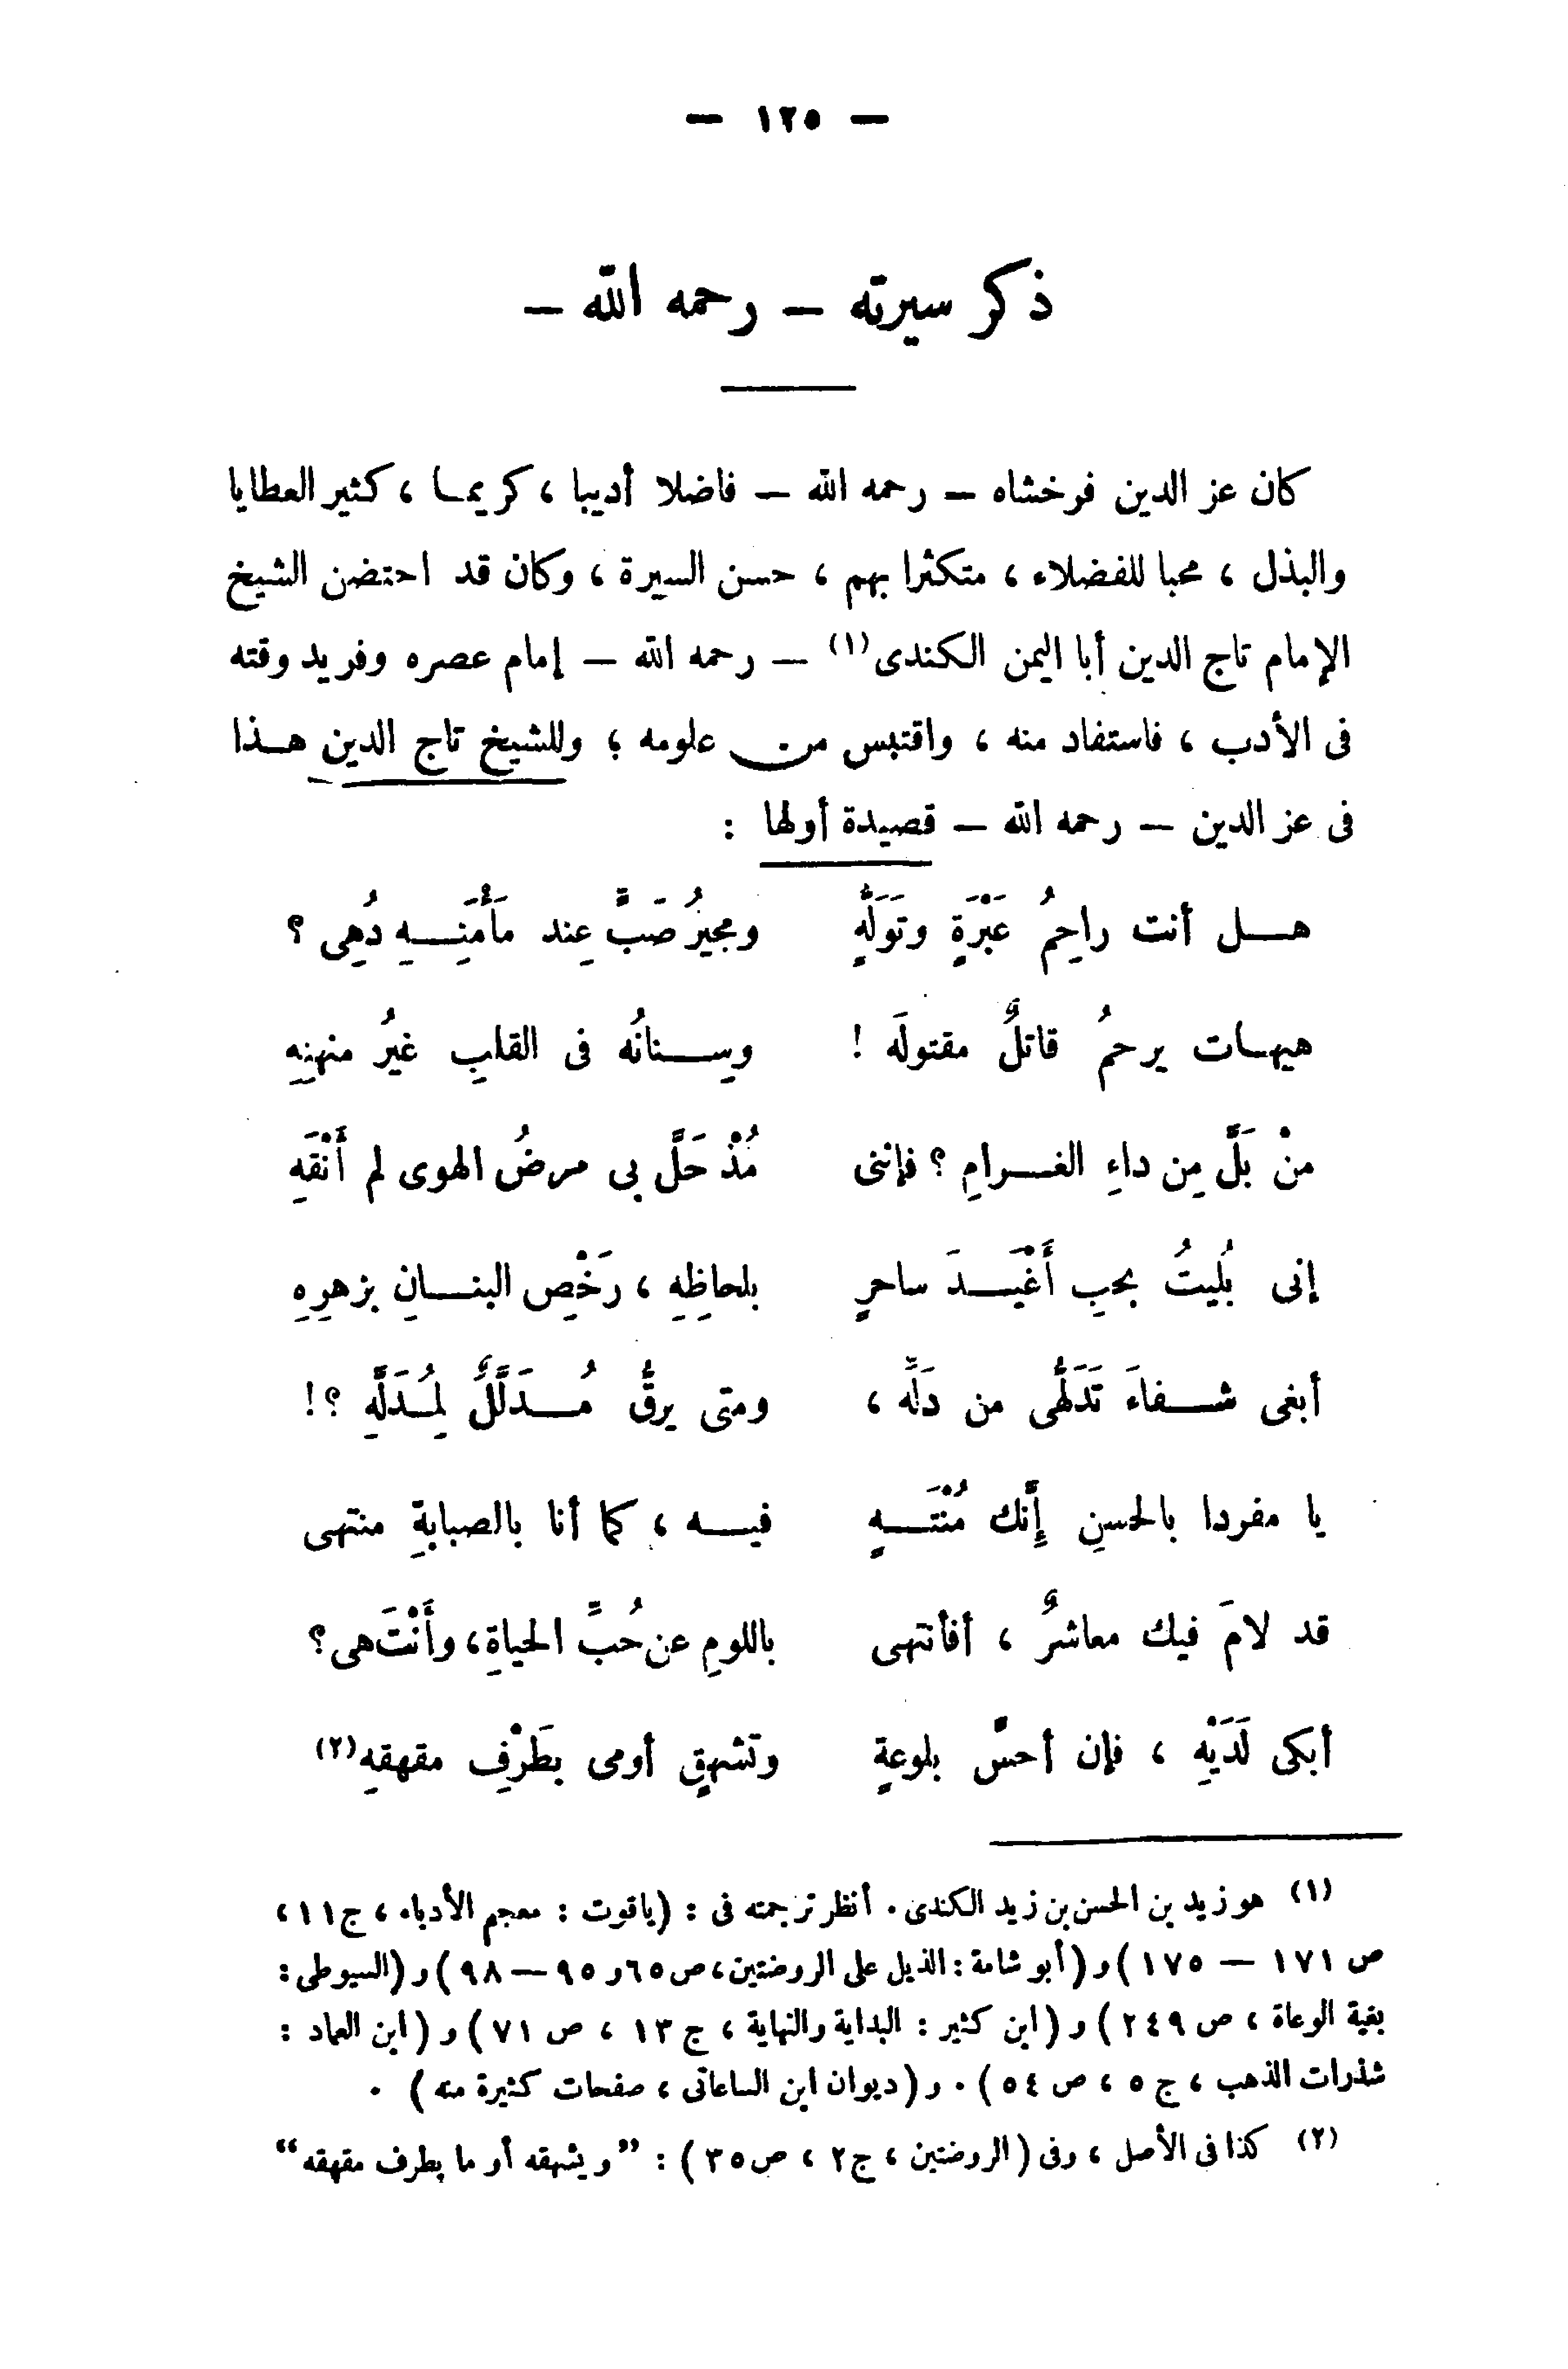 — ١٢٥ —
ذكر سيرته — رحمه الله —
كان عز الدين فرخشاه — رحمه الله — فاضلا أديبا ، كريمـا ، كثير العطايا
والبذل ، محبا للفضلاء ، متكثرا بهم ، حسن السيرة ، وكان قد احتضن الشيخ
الإمام تاج الدين أبا اليمن الكندى(١) — رحمه الله — إمام عصره وفريد وقته
فى الأدب ، فاستفاد منه ، واقتبس من علومه ؛ وللشيخ تاج الدين هـذا
فى عز الدين — رحمه الله — قصيدة أولها :
هـــل أنت راحِمُ عَبْرَةٍ وتَوَلُّهٍ ومجيرُ صَبٍّ عِند مَأْمَنِـــهِ دُهِى ؟
هيهـات يرحمُ قاتلٌ مقتولَه ! وسِـــنانُه فى القلبِ غيرُ منهنِهِ
منْ بَلَّ مِن داءِ الغـــرامِ ؟ فإننى مُذْ حَلَّ بى مرضُ الهوى لم أَنْقَهِ
إنى بُليتُ بحبِ أَغْيَـــدَ ساحرٍ بلحاظِهِ ، رَخْصِ البنـــانِ بزهرِهِ
أبغى شـــفاءَ تَدَلُّهى من دَلِّه ، ومتى يرقُّ مُـــدَلَّلٌ لِمُـدَلَّهِ ؟!
يا مفردا بالحسنِ إنَّك مُنْتَـــهٍ فيـــه ، كما أنا بالصبابةِ منتهى
قد لامَ فيك معاشرٌ ، أفأنتهى باللومِ عن حُبِّ الحياةِ، وأَنْتَ هى؟
أبكى لَدَيْهِ ، فإن أحسَّ بلوعةٍ وتشهقٍ أومى بطَرْفِ مقهقهِ(٢)
(١) هو زيد بن الحسن بن زيد الكندى . أنظر ترجمته فى : (ياقوت : معجم الأدباء ، ج١١ ،
ص ١٧١ — ١٧٥ ) و (أبو شامة : الذيل على الروضتين، ص ٦٥و ٩٥ — ٩٨ ) و (السيوطى :
بغية الوعاة ، ص ٢٤٩ ) و (ابن كثير : البداية والنهاية ، ج ١٣ ، ص ٧١ ) و (ابن العماد :
شذرات الذهب ، ج ٥ ، ص ٥٤ ) . و (ديوان ابن الساعاتى ، صفحات كثيرة منه ) .
(٢) كذا فى الأصل ، وفى (الروضتين ، ج٢ ، ص٣٥ ) : ”ويشهقه أو ما بطرف مقهقه“